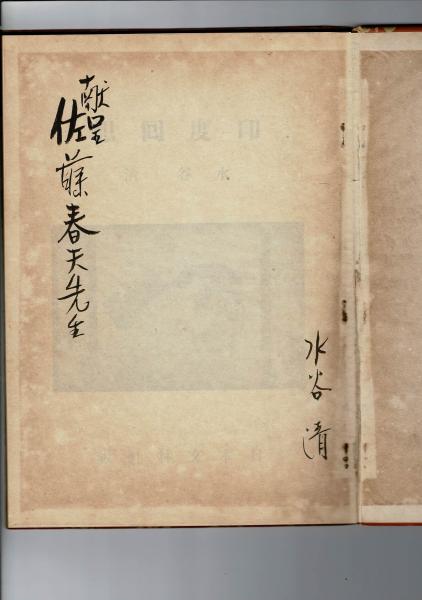 献呈
佐藤春夫先生
水谷清
印度回想
水谷清